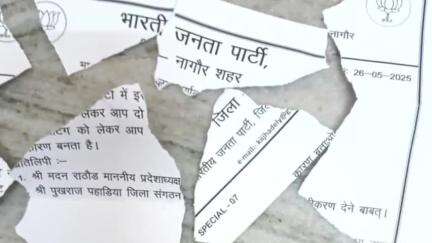 भारती जनता पार्टी,
नागौर
– नागौर शहर
26-05-2025
में इस
लेकर आप दो
को लेकर आप
कारण बनता है।
तिलिपी :–
1. श्री मदन राठौड माननीय प्रदेशाध्यक्ष
श्री पुखराज पहाडिया जिला संगठन
जिला
रतीय जनता पार्टी, जि
e-mail:-
SPECIAL - 07
कारण बताओ
ीकरण देने बाबत्।